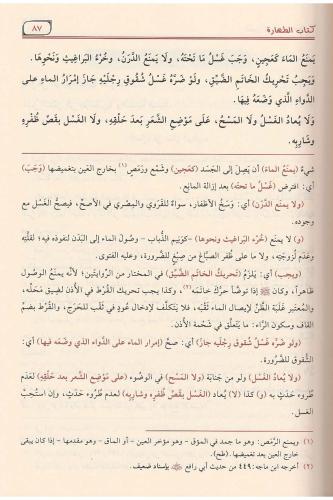 كتاب الطهارة
٨٧
يَمنَعُ المَاءَ كَعَجِينٍ، وَجَبَ غَسْلُ مَا تَحْتَهُ، ولَا يَمنَعُ الدَّرَنُ، وخُرْءُ البَرَاغِيثِ ونَحْوِهَا.
ويَجِبُ تَحْرِيكُ الخَاتَمِ الضَّيِّقِ، ولَوْ ضَرَّهُ غَسْلُ شُقُوقِ رِجْلَيهِ جَازَ إِمْرَارُ المَاءِ عَلى
الدَّوَاءِ الَّذِي وَضَعَهُ فِيهَا.
وَلَا يُعَادُ الغَسْلُ ولَا المَسْحُ، عَلَى مَوْضِعِ الشَّعرِ بَعدَ حَلْقِهِ، ولَا الغَسْلُ بِقَصِّ ظُفْرِهِ
وشَارِبِهِ.
شيءٌ (يمنعُ الماءَ) أن يَصِلَ إلى الجَسَد (كعجينٍ) وشَمْعٍ ورَمَصٍ(١) بخارج العين بتغميضها (وَجَبَ)
أي: افترض (غَسْلُ ما تحتَه) بعد إزالة المانع.
(ولا يمنع الدَّرَن) أي: وَسَخُ الأظفار، سواءٌ للقَرَوي والمِصري في الأصحّ، فيصحُّ الغسل مع
وجوده.
(و) لا يمنع (خُرْءُ البَراغيث ونحوها) -كوَنِيم الذُّباب - وصُولَ الماء إلى البَدَن لنفوذه فيه؛ لقلّته
وعَدَم لُزوجَته، ولا ما على ظُفر الصبّاغ من صِبْغٍ للضَّرورة، وعليه الفتوى.
(ويجب) أي: يَلزَمُ (تحريكُ الخاتَم الضيِّق) في المختار من الرِّوايتين؛ لأنّه يمنعُ الوصول
ظاهراً، وكان ﷺ إذا توضّأ حرَّك خاتَمه(٢)، وكذا يجب تحريك القُرط في الأُذُن لضِيق مَحَلّه،
والمُعتبر غَلَبة الظَّنّ لإيصال الماء ثَقْبَه، فلا يتكلّف لإدخال عُودٍ في ثَقبٍ للحَرَج، والقُرط بضمّ
القاف وسكون الرَّاء: ما يَعلَق في شَحْمة الأُذُن.
(ولو ضرّه غَسلُ شُقوق رِجلَيه جاز) أي: صحَّ (إمرار الماء على الدّواء الذي وَضَعه فيها) أي:
الشُّقوق للضَّرورة.
(ولا يُعادُ الغَسل) ولو من جَنابة (ولا المَسح) في الوضوء (على مَوضِع الشَّعر بعد حَلْقه) لعَدَم
طُروء حَدَثٍ به (و) كذا (لا) يُعاد (الغَسل بقَصِّ ظُفُره وشارِبه) لعدم طُروء حَدَثٍ، وإن استُحِبَّ
الغسل.
(١) ويمنع الرَّمَص: وهو ما جمد في المؤق - وهو مؤخر العين - أو الماق - وهو مقدمها - إذا كان يبقى
خارج العين بعد تغميضها. (طح).
(٢) أخرجه ابن ماجه: ٤٤٩ من حديث أبي رافع ﵁ بإسناد ضعيف.